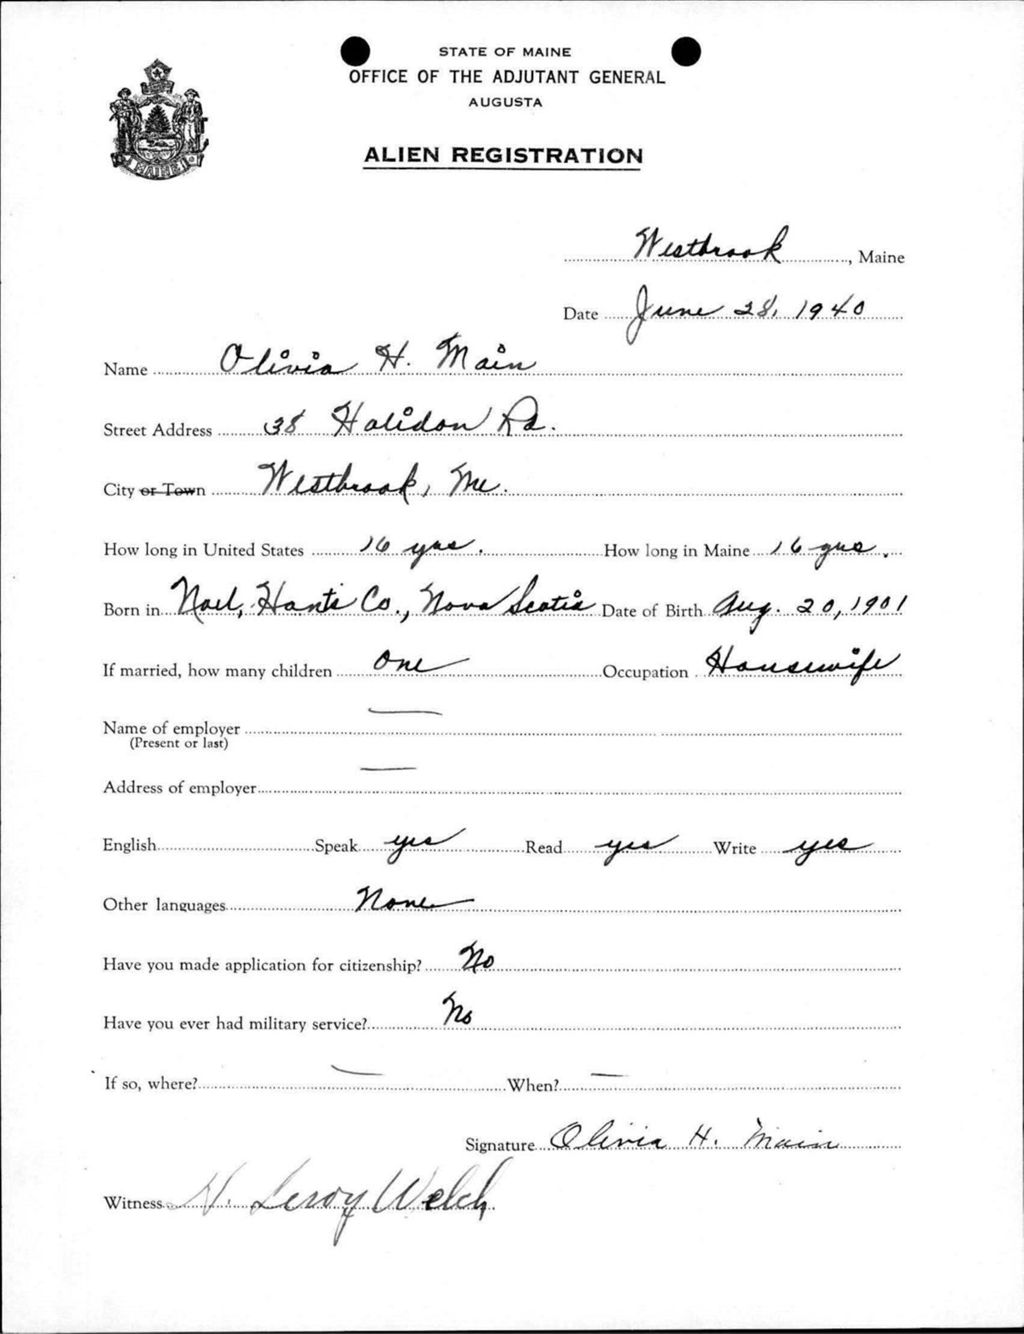 STATE OF MAINE
OFFICE OF THE ADJUTANT GENERAL
AUGUSTA
ALIEN REGISTRATION
MAINE
Westbrook, Maine
Date June 28, 1940
Name Olivia H. Main
Street Address 38 Halidon Rd.
City or Town Westbrook, Me.
How long in United States 16 yrs. How long in Maine 16 yrs.
Born in Noel, Hants Co., Nova Scotia Date of Birth Aug. 20, 1901
If married, how many children One Occupation Housewife
Name of employer —
(Present or last)
Address of employer —
English Speak yes Read yes Write yes
Other languages None
Have you made application for citizenship? No
Have you ever had military service? No
If so, where? — When? —
Signature Olivia H. Main
Witness H. Leroy Welch